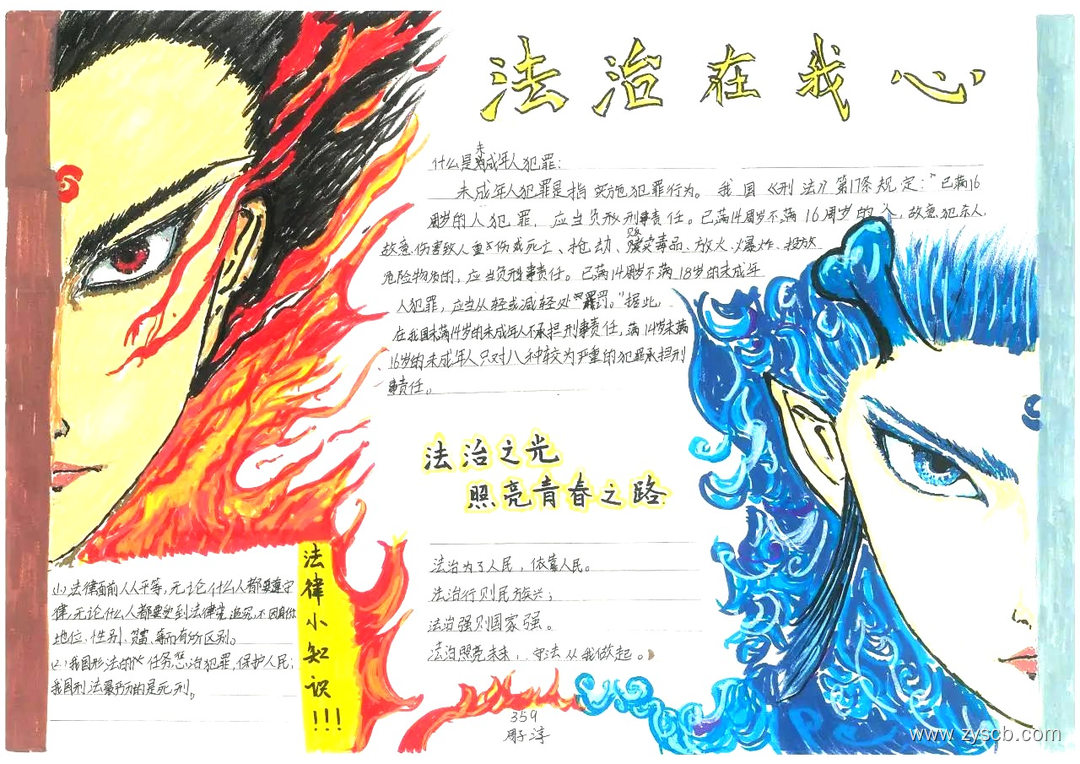 法治在我心
什么是未成年人犯罪:
未成年人犯罪是指实施犯罪行为。我国《刑法》第17条规定:"已满16
周岁的人犯罪,应当负刑事责任。已满14周岁不满16周岁的人,故意犯杀人、
故意伤害致人重伤或死亡、抢劫、贩卖毒品、放火、爆炸、投放
危险物质的,应当负刑事责任。已满14周岁不满18岁的未成年
人犯罪,应当从轻或减轻处罚。"据此,
在我国未满14岁的未成年人不承担刑事责任,满14岁未满
16岁的未成年人只对八种较为严重的犯罪承担刑
事责任。
法治之光
照亮青春之路
法治为了人民,依靠人民。
法治行则民族兴;
法治强则国家强。
法治照亮未来,守法从我做起。
法律小知识!!!
(1)法律面前人人平等,无论什么人都要遵守
律,无论什么人都要受到法律追究,不因
地位、性别、而有所区别。
我国刑法的任务惩治犯罪,保护人民;
我国刑法最严厉的是死刑。
359
周子淳
www.zyscb.com